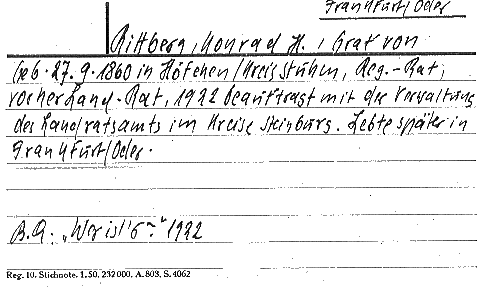 Frankfurt/Oder
Rittberg, Konrad H., Graf von
Geb. 27.9.1860 in Höfchen/Kreis Stuhm, Reg.-Rat,
vorher Land-Rat, 1922 beauftragt mit der Verwaltung
des Landratsamts im Kreise Steinburg. Lebte später in
Frankfurt/Oder.
B.A. „Wer ist's" 1922
Reg. 10. Stichnote. 1.50. 232000. A.803, S.4062